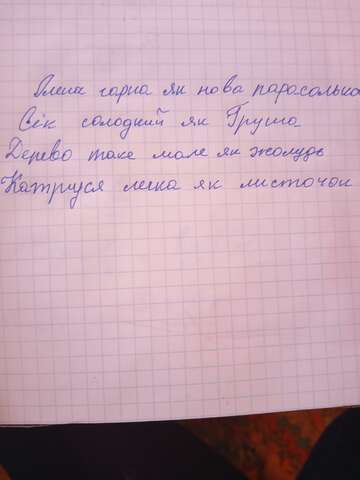 Олена гарна як нова парасолька
Сік солодкий як Груша
Дерево таке мале як жолудь
Катруся легка як листочок